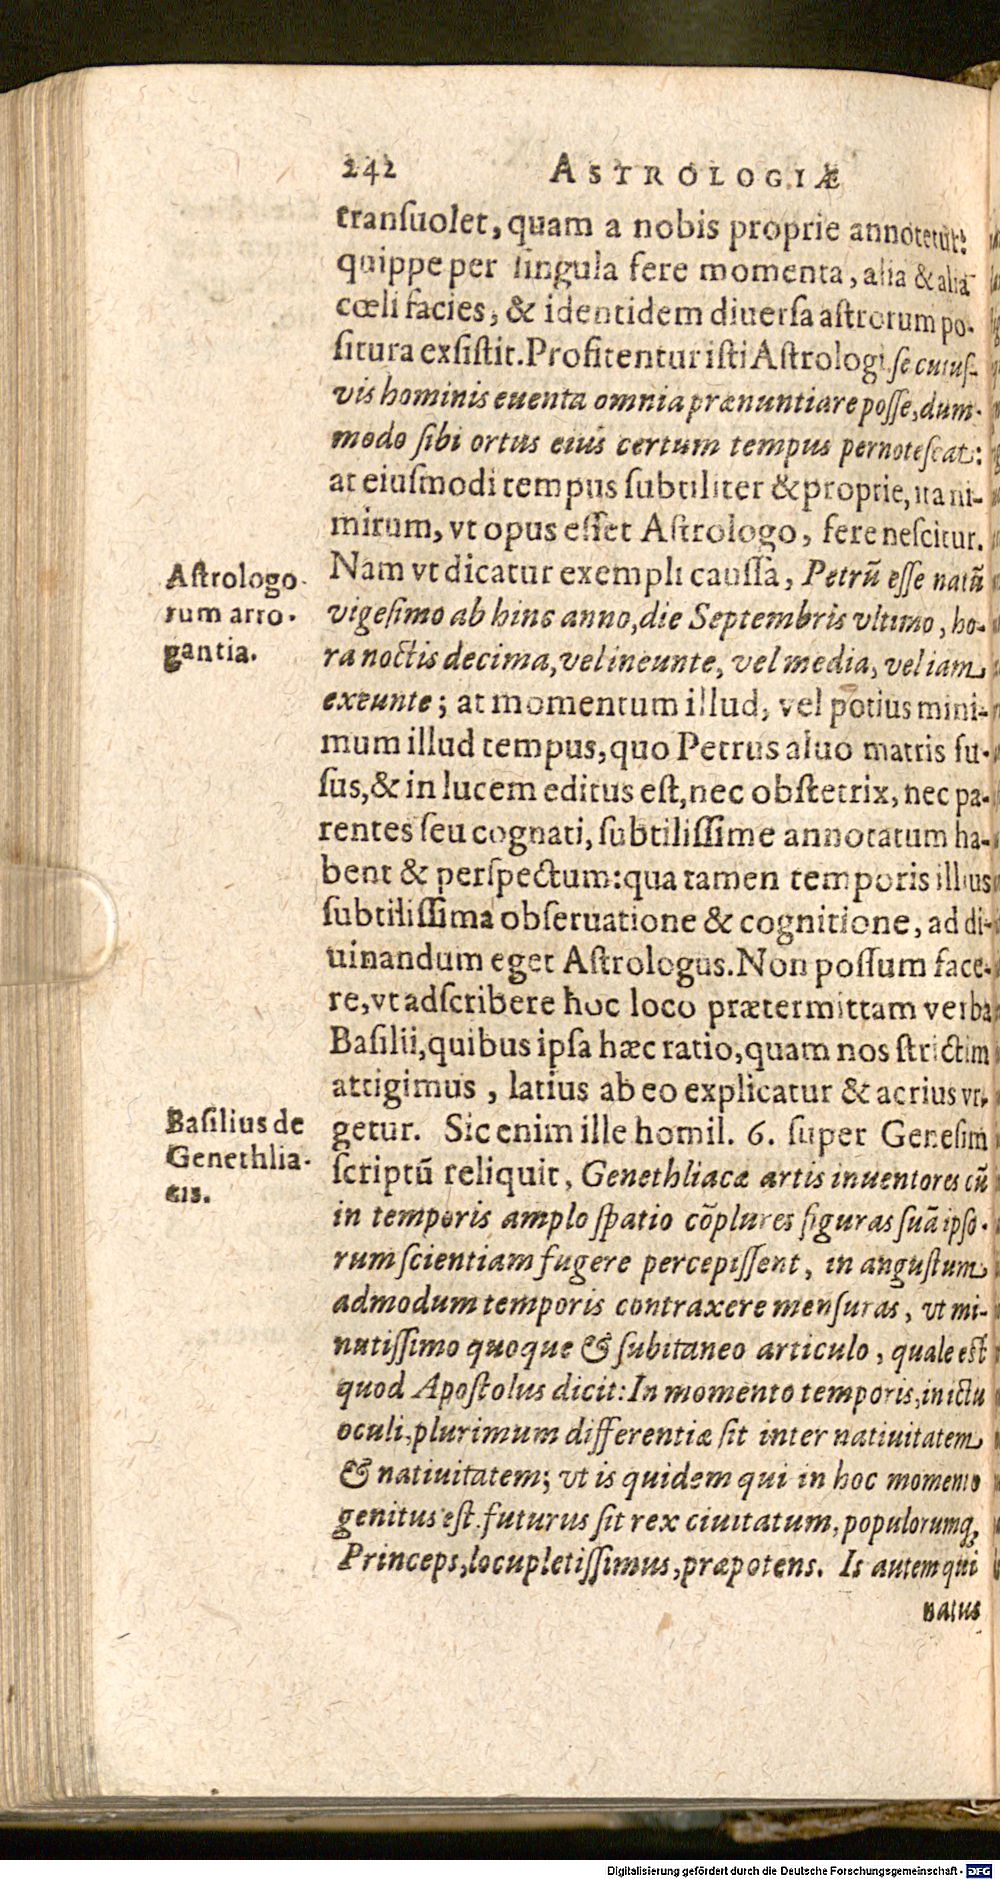 242 ASTROLOGIÆ
tranſuolet, quam a nobis proprie annotetur?
quippe per ſingula fere momenta, alia & alia
cœli facies, & identidem diuerſa aſtrorum po-
ſitura exſiſtit. Profitentur iſti Aſtrologi ſe cuiuſ-
vis hominis euenta omnia prænuntiare poſſe, dum-
modo ſibi ortus eius certum tempus pernoteſcat:
at eiuſmodi tempus ſubtiliter & proprie, ita ni-
mirum, vt opus eſſet Aſtrologo, fere neſcitur.
Nam vt dicatur exempli cauſſa, Petrũ eſſe natũ
vigeſimo ab hinc anno, die Septembris vltimo, ho-
ra noctis decima, vel ineunte, vel media, vel iam
exeunte; at momentum illud, vel potius mini-
mum illud tempus, quo Petrus aluo matris fu-
ſus, & in lucem editus eſt, nec obſtetrix, nec pa-
rentes ſeu cognati, ſubtiliſſime annotatum ha-
bent & perſpectum: qua tamen temporis illius
ſubtiliſſima obſeruatione & cognitione, ad di-
uinandum eget Aſtrologus. Non poſſum face-
re, vt adſcribere hoc loco prætermittam verba
Baſilii, quibus ipſa hæc ratio, quam nos ſtrictim
attigimus, latius ab eo explicatur & acrius vr-
getur. Sic enim ille homil. 6. ſuper Geneſim
ſcriptũ reliquit, Genethliacæ artis inuentores cũ
in temporis amplo ſpatio cõplures figuras ſuã ipſo-
rum ſcientiam fugere percepiſſent, in anguſtum
admodum temporis contraxere menſuras, vt mi-
nutiſſimo quoque & ſubitaneo articulo, quale eſt
quod Apoſtolus dicit: In momento temporis, in ictu
oculi, plurimum differentiæ ſit inter natiuitatem
& natiuitatem; vt is quidem qui in hoc momento
genitus eſt, futurus ſit rex ciuitatum, populorumq;
Princeps, locupletiſſimus, præpotens. Is autem qui
natus
Aſtrologo-
rum arro-
gantia.
Baſilius de
Genethlia-
cis.
Digitalisierung gefördert durch die Deutsche Forschungsgemeinschaft - DFG